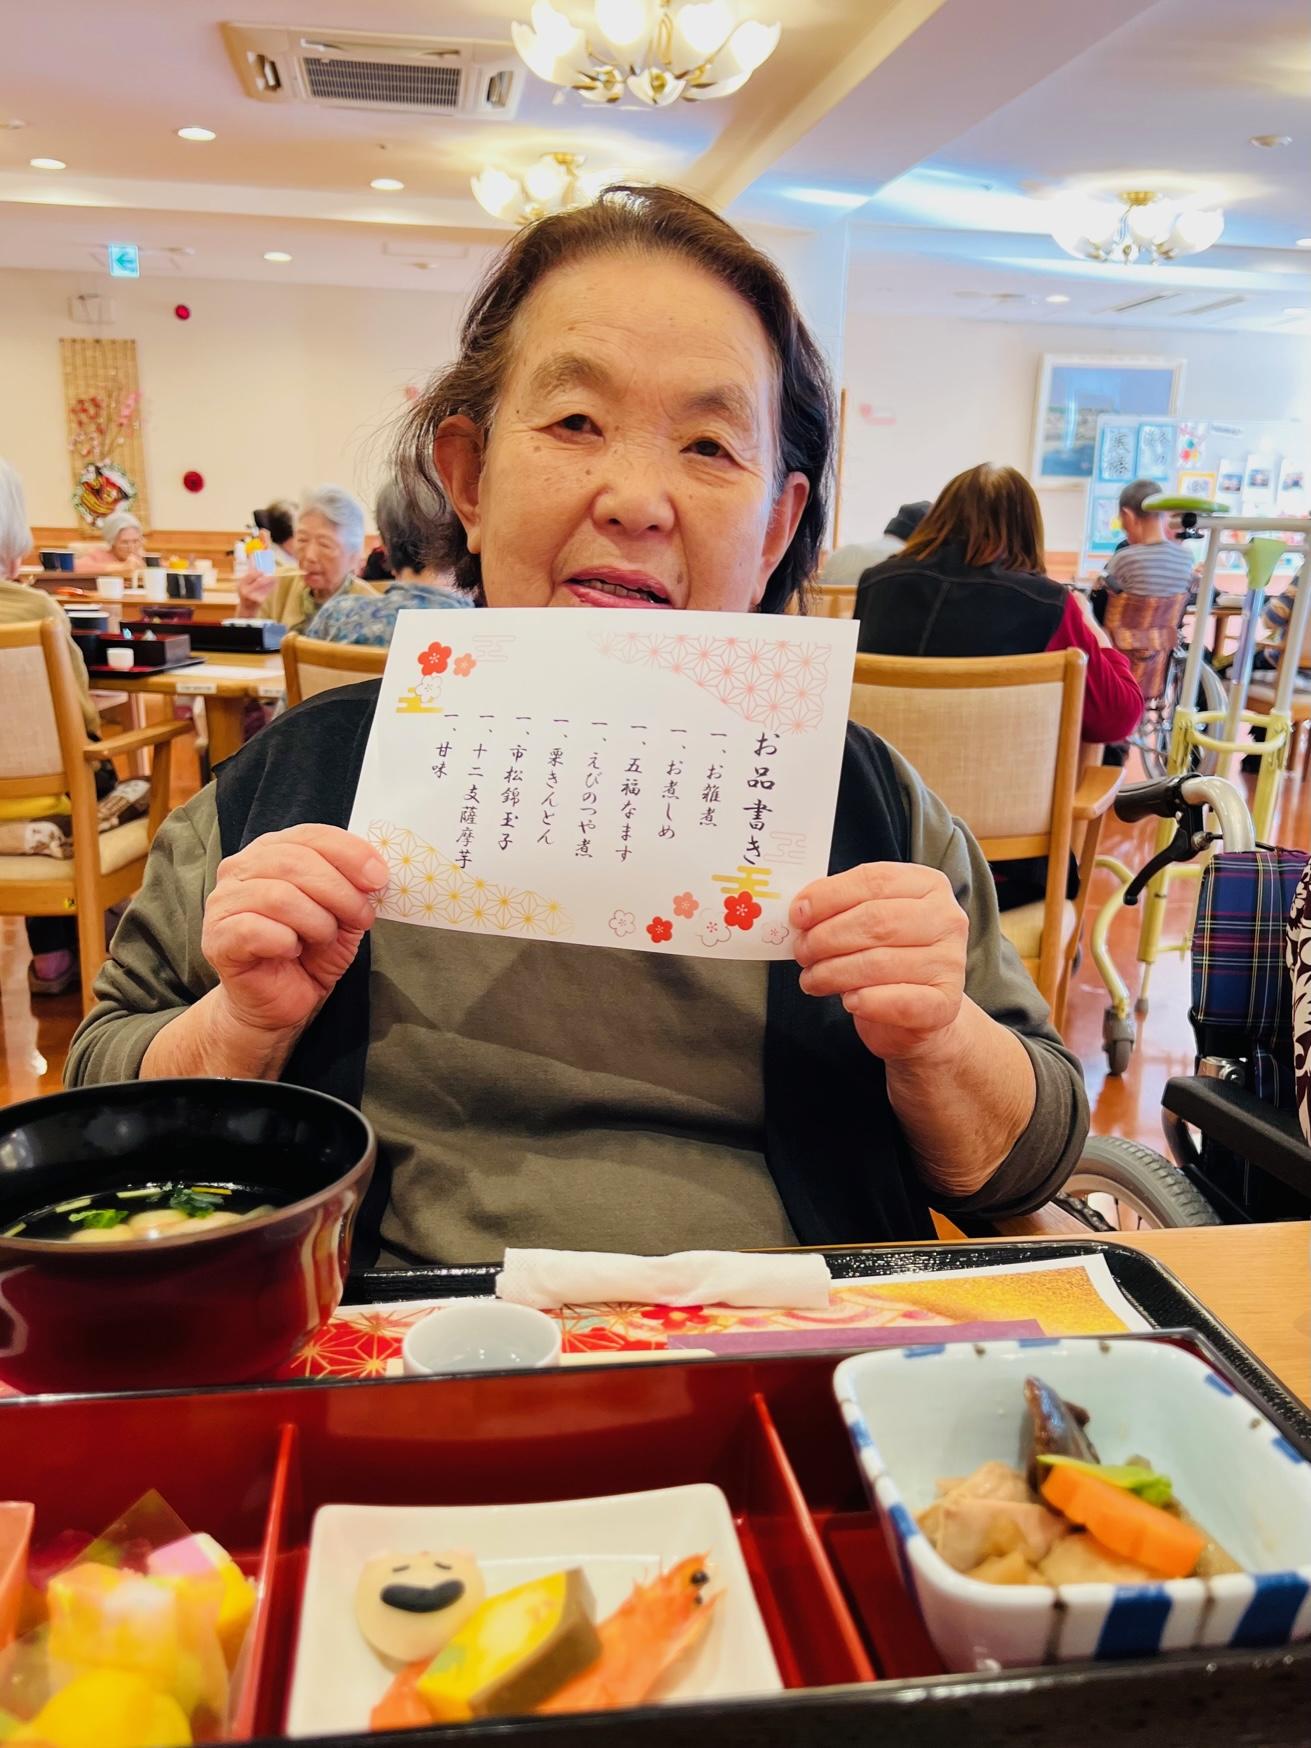 お品書き
一、お雑煮
一、お煮しめ
一、五福なます
一、えびのつや煮
一、栗きんとん
一、市松錦玉子
一、十二支薩摩芋
一、甘味